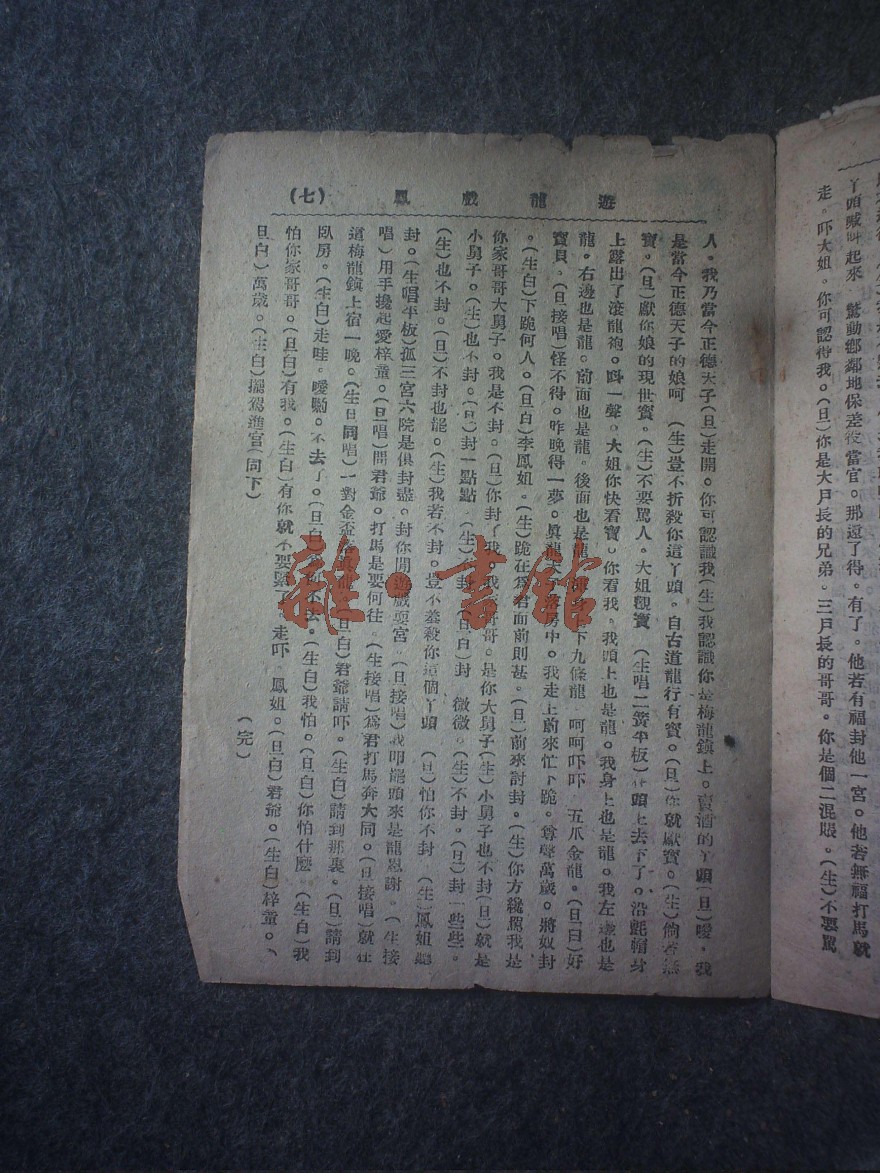 丫頭喊叫起來　驚動鄉鄰地保差役當官。那還了得。有了。他若有福封他一宮。他若無福打馬就
走。吓大姐。你可認得我。(旦)你是大戶長的兄弟。三戶長的哥哥。你是個二混賬。(生)不要罵
遊龍戲鳳　(七)
人。我乃當今正德天子(旦)走開。你可認識我(生)我認識你是梅龍鎮上。賣酒的丫頭(旦)噯。我
是當今正德天子的娘呵　(生)豈不折殺你這丫頭。自古道龍行有寶。(旦)你就獻寶。(生)倘若無
寶。(旦)獻你娘的現世寶。(生)不要罵人。大姐觀寶　(生唱二簧平板)在頭上去下了。沿氈帽身
上露出了滾龍袍。叫一聲。大姐你快看寶。你看我。我頭上也是龍。我身上也是龍。我左邊也是
龍。右邊也是龍。前面也是龍。後面也是龍 身上下九條龍　呵呵吓吓　五爪金龍。(旦白)好
寶貝。(旦接唱)怪不得。昨晚得一夢。真龍天子落房中。我走上前來忙下跪。尊聲萬歲。將奴封
。(生白)下跪何人。(旦白)李鳳姐。(生)跪在為君面前則甚。(旦)前來討封。(生)你方纔罵我是
你家哥哥大舅子。我是不封。(旦)你封了我。我 哥哥。是你大舅子(生)小舅子也不封(旦)就是
小舅子。(生)也不封。(旦)封一點點。(生)不封。(旦白)封　微微。(生)不封。(旦)封一些些。
(生)也不封。(旦)不封也罷。(生)我若不封。豈不羞殺你這個丫頭　(旦)怕你不封　(生)鳳姐聽
封。(生唱平板)孤三宮六院是俱封盡。封你閒遊戲耍宮。(旦接唱)我叩罷頭來是龍恩謝。(生接
唱)用手攙起愛梓童。(旦唱)問君爺。打馬是要何往。(生接唱)為君打馬奔大同。(旦接唱)就在
這梅龍鎮上宿一晚。(生旦同唱)一對金盃 (旦白)君爺請吓。(生白)請到那裏。(旦)請到
臥房。(生白)走哇。噯喲。不去了。(旦白)為何不去。(生白)我怕。(旦白)你怕什麼。(生白)我
怕你家哥哥。(旦白)有我。(生白)有你就不要緊了。走吓　鳳姐。(旦白)君爺。(生白)梓童。(
旦白)萬歲。(生白)擺駕進宮(同下)
(完)
雜·書館